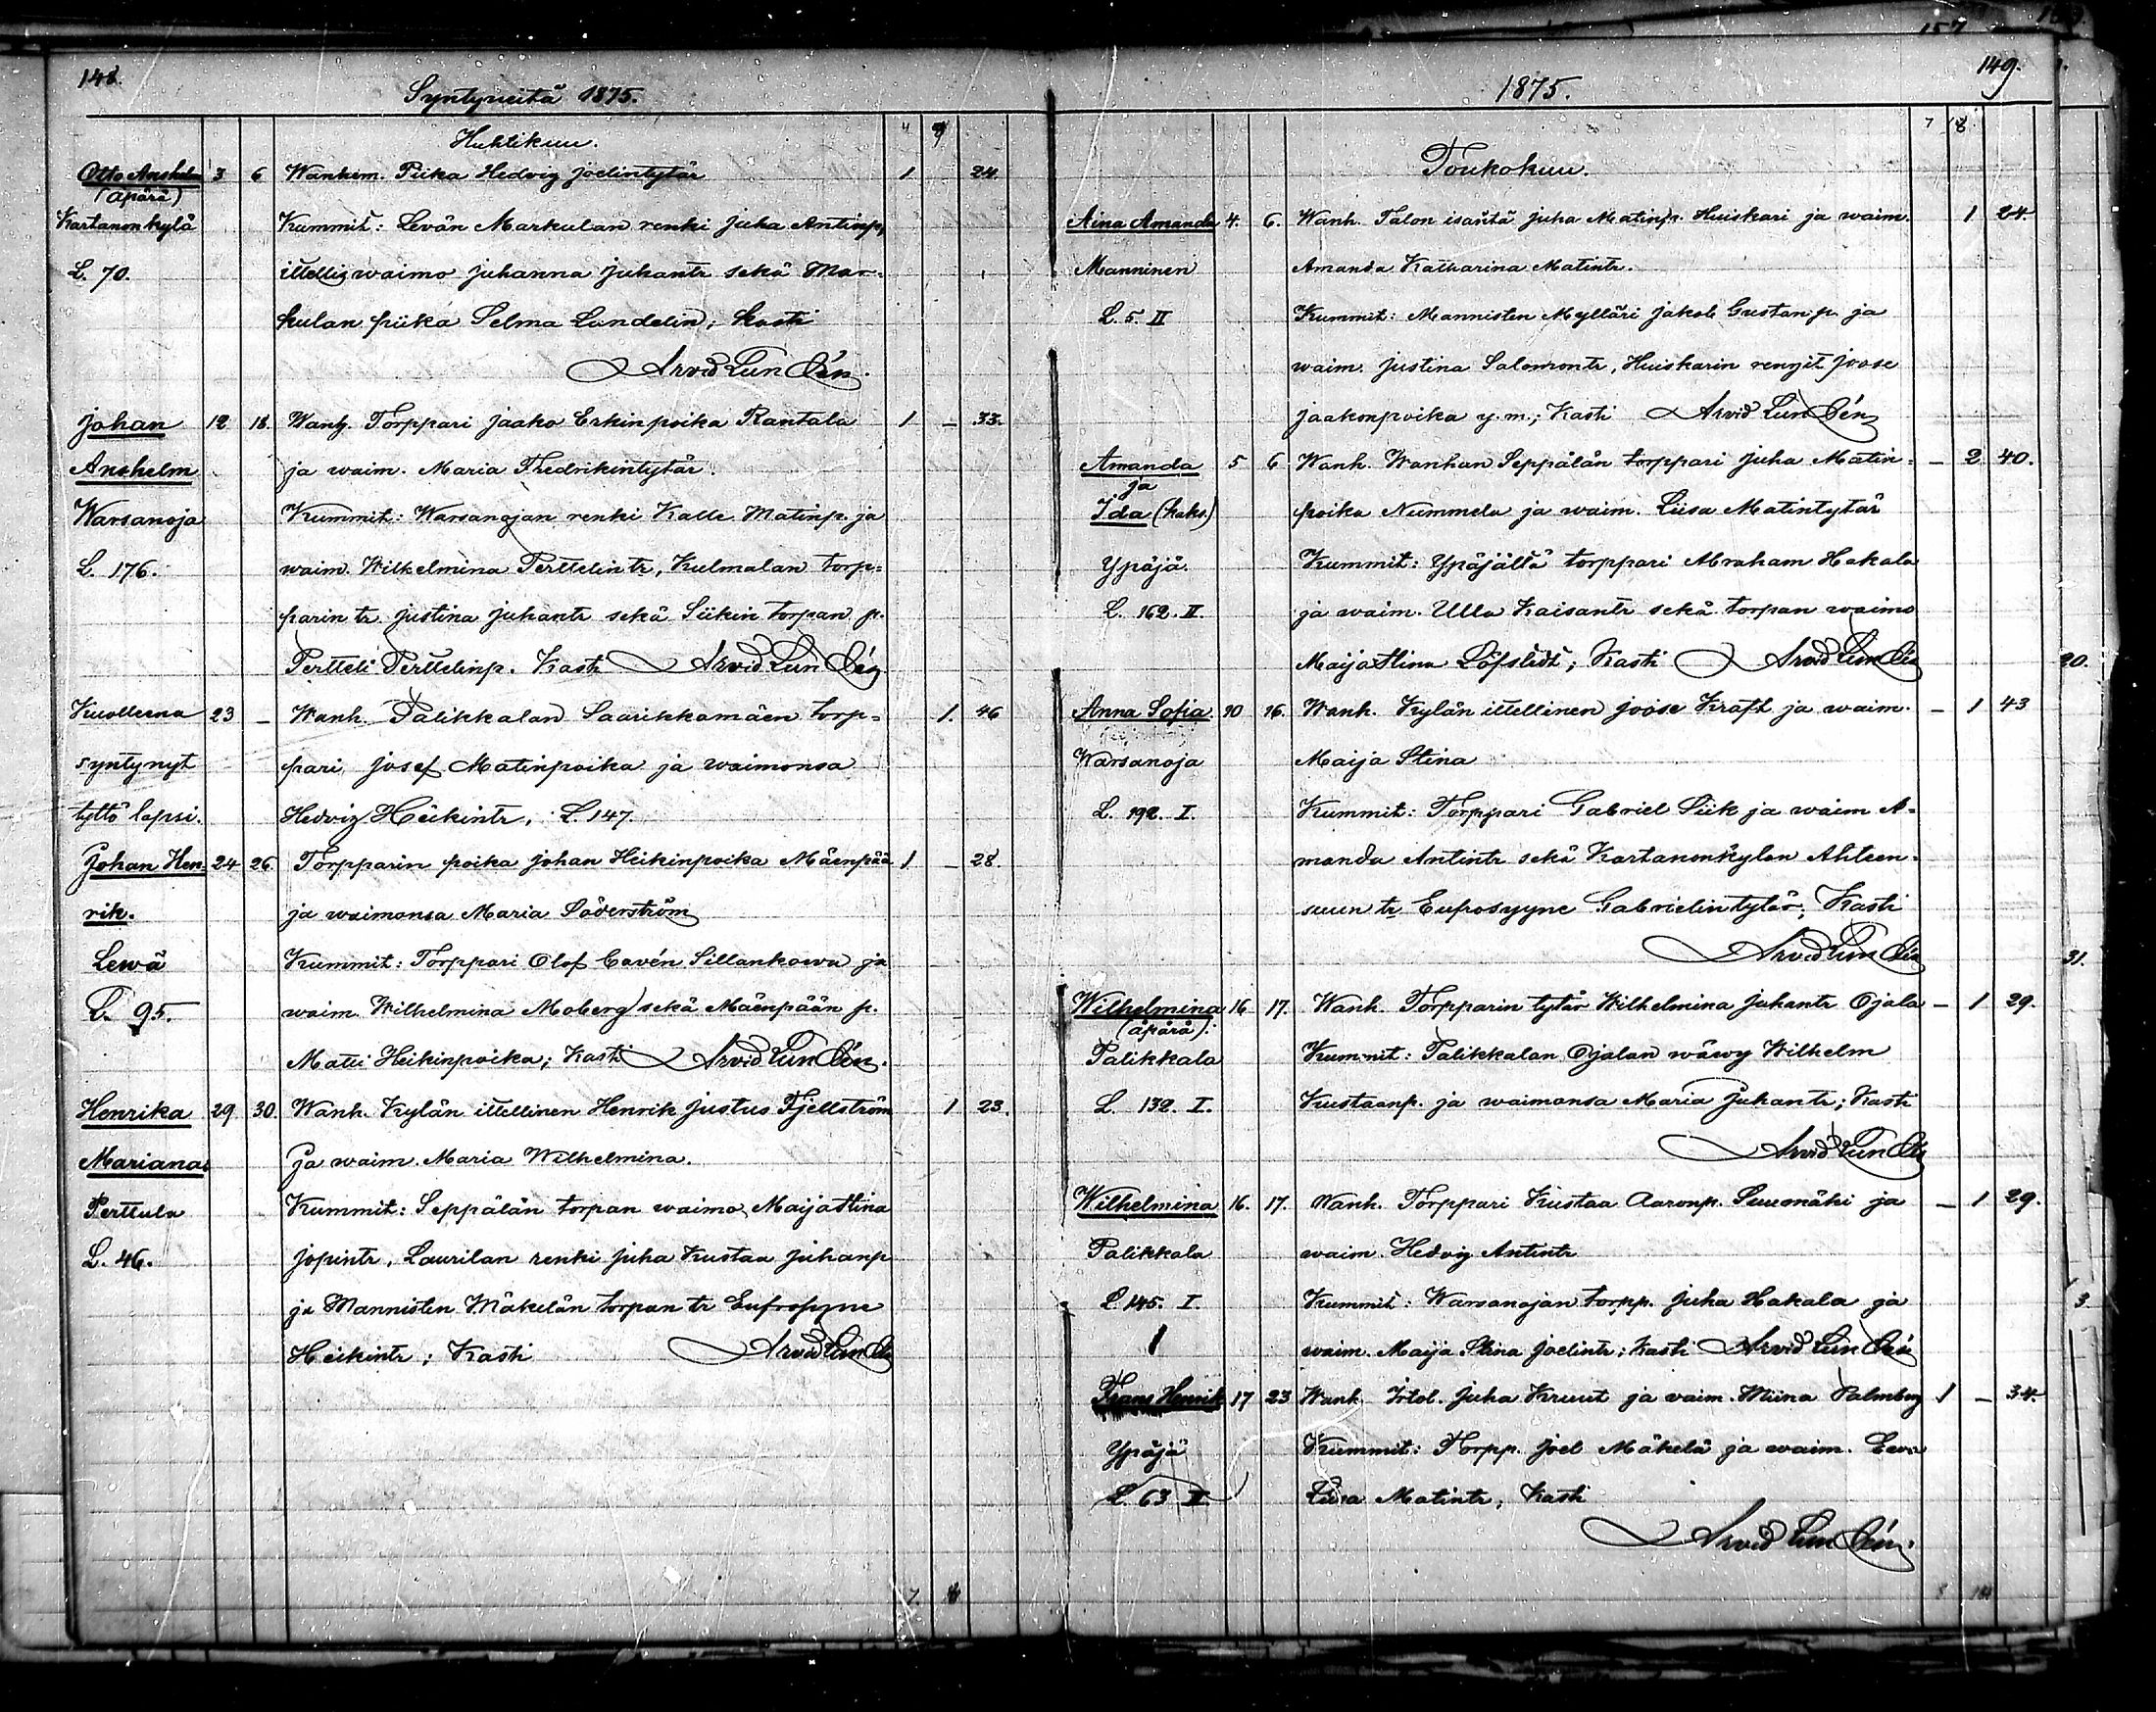 148.
Syntyneitä 1875.
Huhtikuu.
Otto Anshelm 3 6 Wanhem. Piika Hedvig Joelintytär 1 24.
(äpärä)
Kartanonkylä Kummit: Levän Markulan renki Juha Antinp,
L. 70. itsellis waimo Juhanna Juhantr sekä Mar-
kulan piika Selma Lundelin; kasti
Arvid Lundén.
Johan 12 18. Wanh. Torppari Jaako Erkinpoika Rantala 1 — 33.
Anshelm ja waim. Maria Fredrikintytär.
Warsanoja Kummit: Warsanojan renki Kalle Matinp. ja
L. 176. waim. Wilhelmina Perttelintr, Kulmalan torp=
parin tr. Justina Juhantr sekä Siikin torpan p.
Pertteli Perttelinp. Kasti Arvid Lundén
Kuolleena 23 — Wanh. Palikkalan Saarikkamäen torp= 1. 46
syntynyt pari Josef Matinpoika ja waimonsa
tyttö lapsi. Hedvig Heikintr, L. 147.
Johan Hen= 24 26. Torpparin poika Johan Heikinpoika Mäenpää 1 — 28.
rik. ja waimonsa Maria Söderström
Lewä Kummit: Torppari Olof Cavén Sillankorwa ja
L. 95. waim. Wilhelmina Moberg sekä Mäenpään p.
Matti Heikinpoika; Kasti Arvid Lundén.
Henrika 29. 30. Wanh. Kylän itsellinen Henrik Justus Fjellström 1 23.
Mariana Ja waim. Maria Wilhelmina.
Perttula Kummit: Seppälän torpan waimo Maijastina
L. 46. Jopintr, Laurilan renki Juha Kustaa Juhanp
ja Mannisten Mäkelän torpan tr Eufrosyne
Heikintr; Kasti Arvid Lundén
149.
1875.
Toukokuu.
Aina Amanda 4. 6. Wanh. Talon isäntä Juha Matinp. Huiskari ja waim. 1 24
Manninen Amanda Katharina Matintr.
L. 5. II Kummit: Mannisten Mylläri Jakob Gustanp. ja
waim. Justina Salomontr, Huiskarin rengit Joose
Jaakonpoika y. m.; Kasti Arvid Lundén
Amanda 5 6 Wanh. Wanhan Seppälän torppari Juha Matin= — 2 40.
ja
Ida (kaks.) poika Nummela ja waim. Liisa Matintytär
Ypäjä. Kummit: Ypäjältä torppari Abraham Hakala
L. 162. II. ja waim. Ulla Kaisantr sekä torpan waimo
Maijastina Löfstedt; Kasti Arvid Lundén
Anna Sofia. 10 16. Wanh. Kylän itsellinen Joose Kraft ja waim. — 1 43
Warsanoja Maija Stina
L. 192. I. Kummit: Torppari Gabriel Siik ja waim A=
manda Antintr sekä Kartanonkylän Ahteen-
suun tr Eufrosyyne Gabrielintytär; Kasti
Arvid Lundén
Wilhelmina 16 17. Wanh. Torpparin tytär Wilhelmina Juhantr Ojala — 1 29.
(äpärä).
Palikkala Kummit: Palikkalan Ojalan wäwy Wilhelm
L. 132. I. Kustaanp. ja waimonsa Maria Juhantr; Kasti
Arvid Lundén
Wilhelmina 16. 17. Wanh. Torppari Kustaa Aaronp. Suomäki ja — 1 29.
Palikkala waim. Hedvig Antintr
L. 145. I. Kummit: Warsanojan torpp. Juha Hakala ja
waim. Maija Stina Joelintr; Kasti Arvid Lundén
Frans Henrik 17 23 Wanh. Irtol. Juha Kruut ja waim. Miina Palmberg 1 — 34.
Ypäjä Kummit: Torpp. Joel Mäkelä ja waim. Eeva
L. 63 II. Liisa Matintr; Kasti
Arvid Lundén.